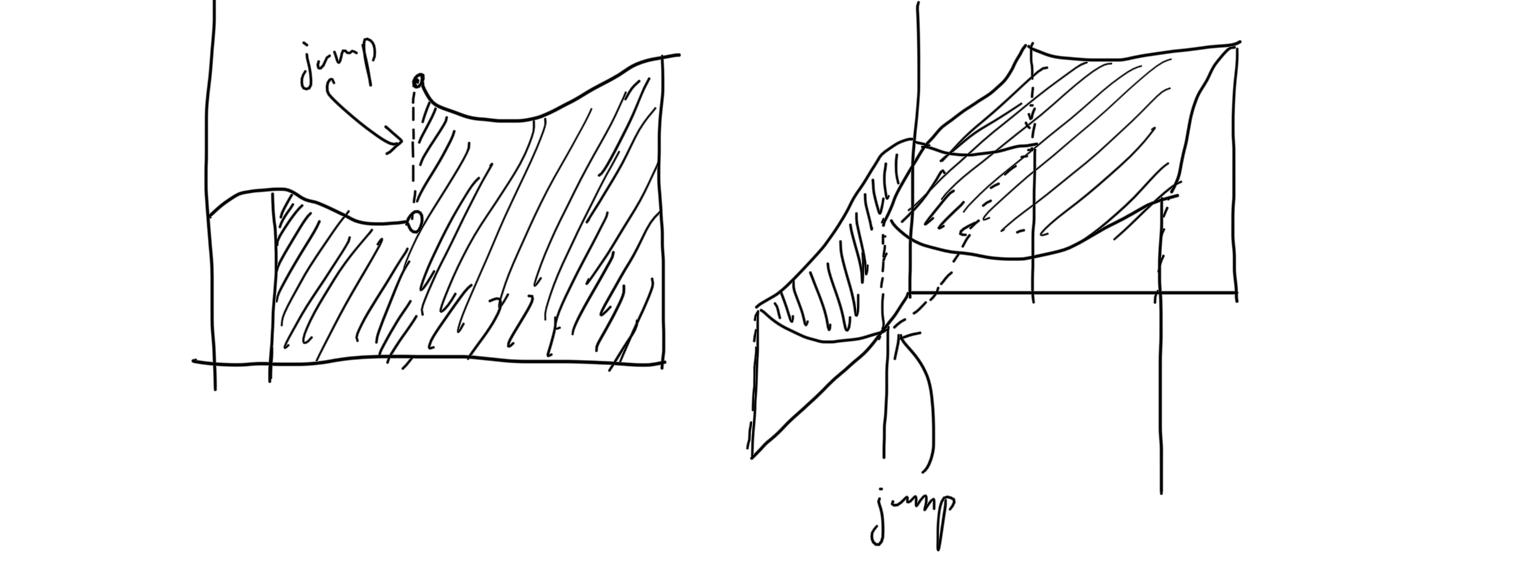 jump
jump